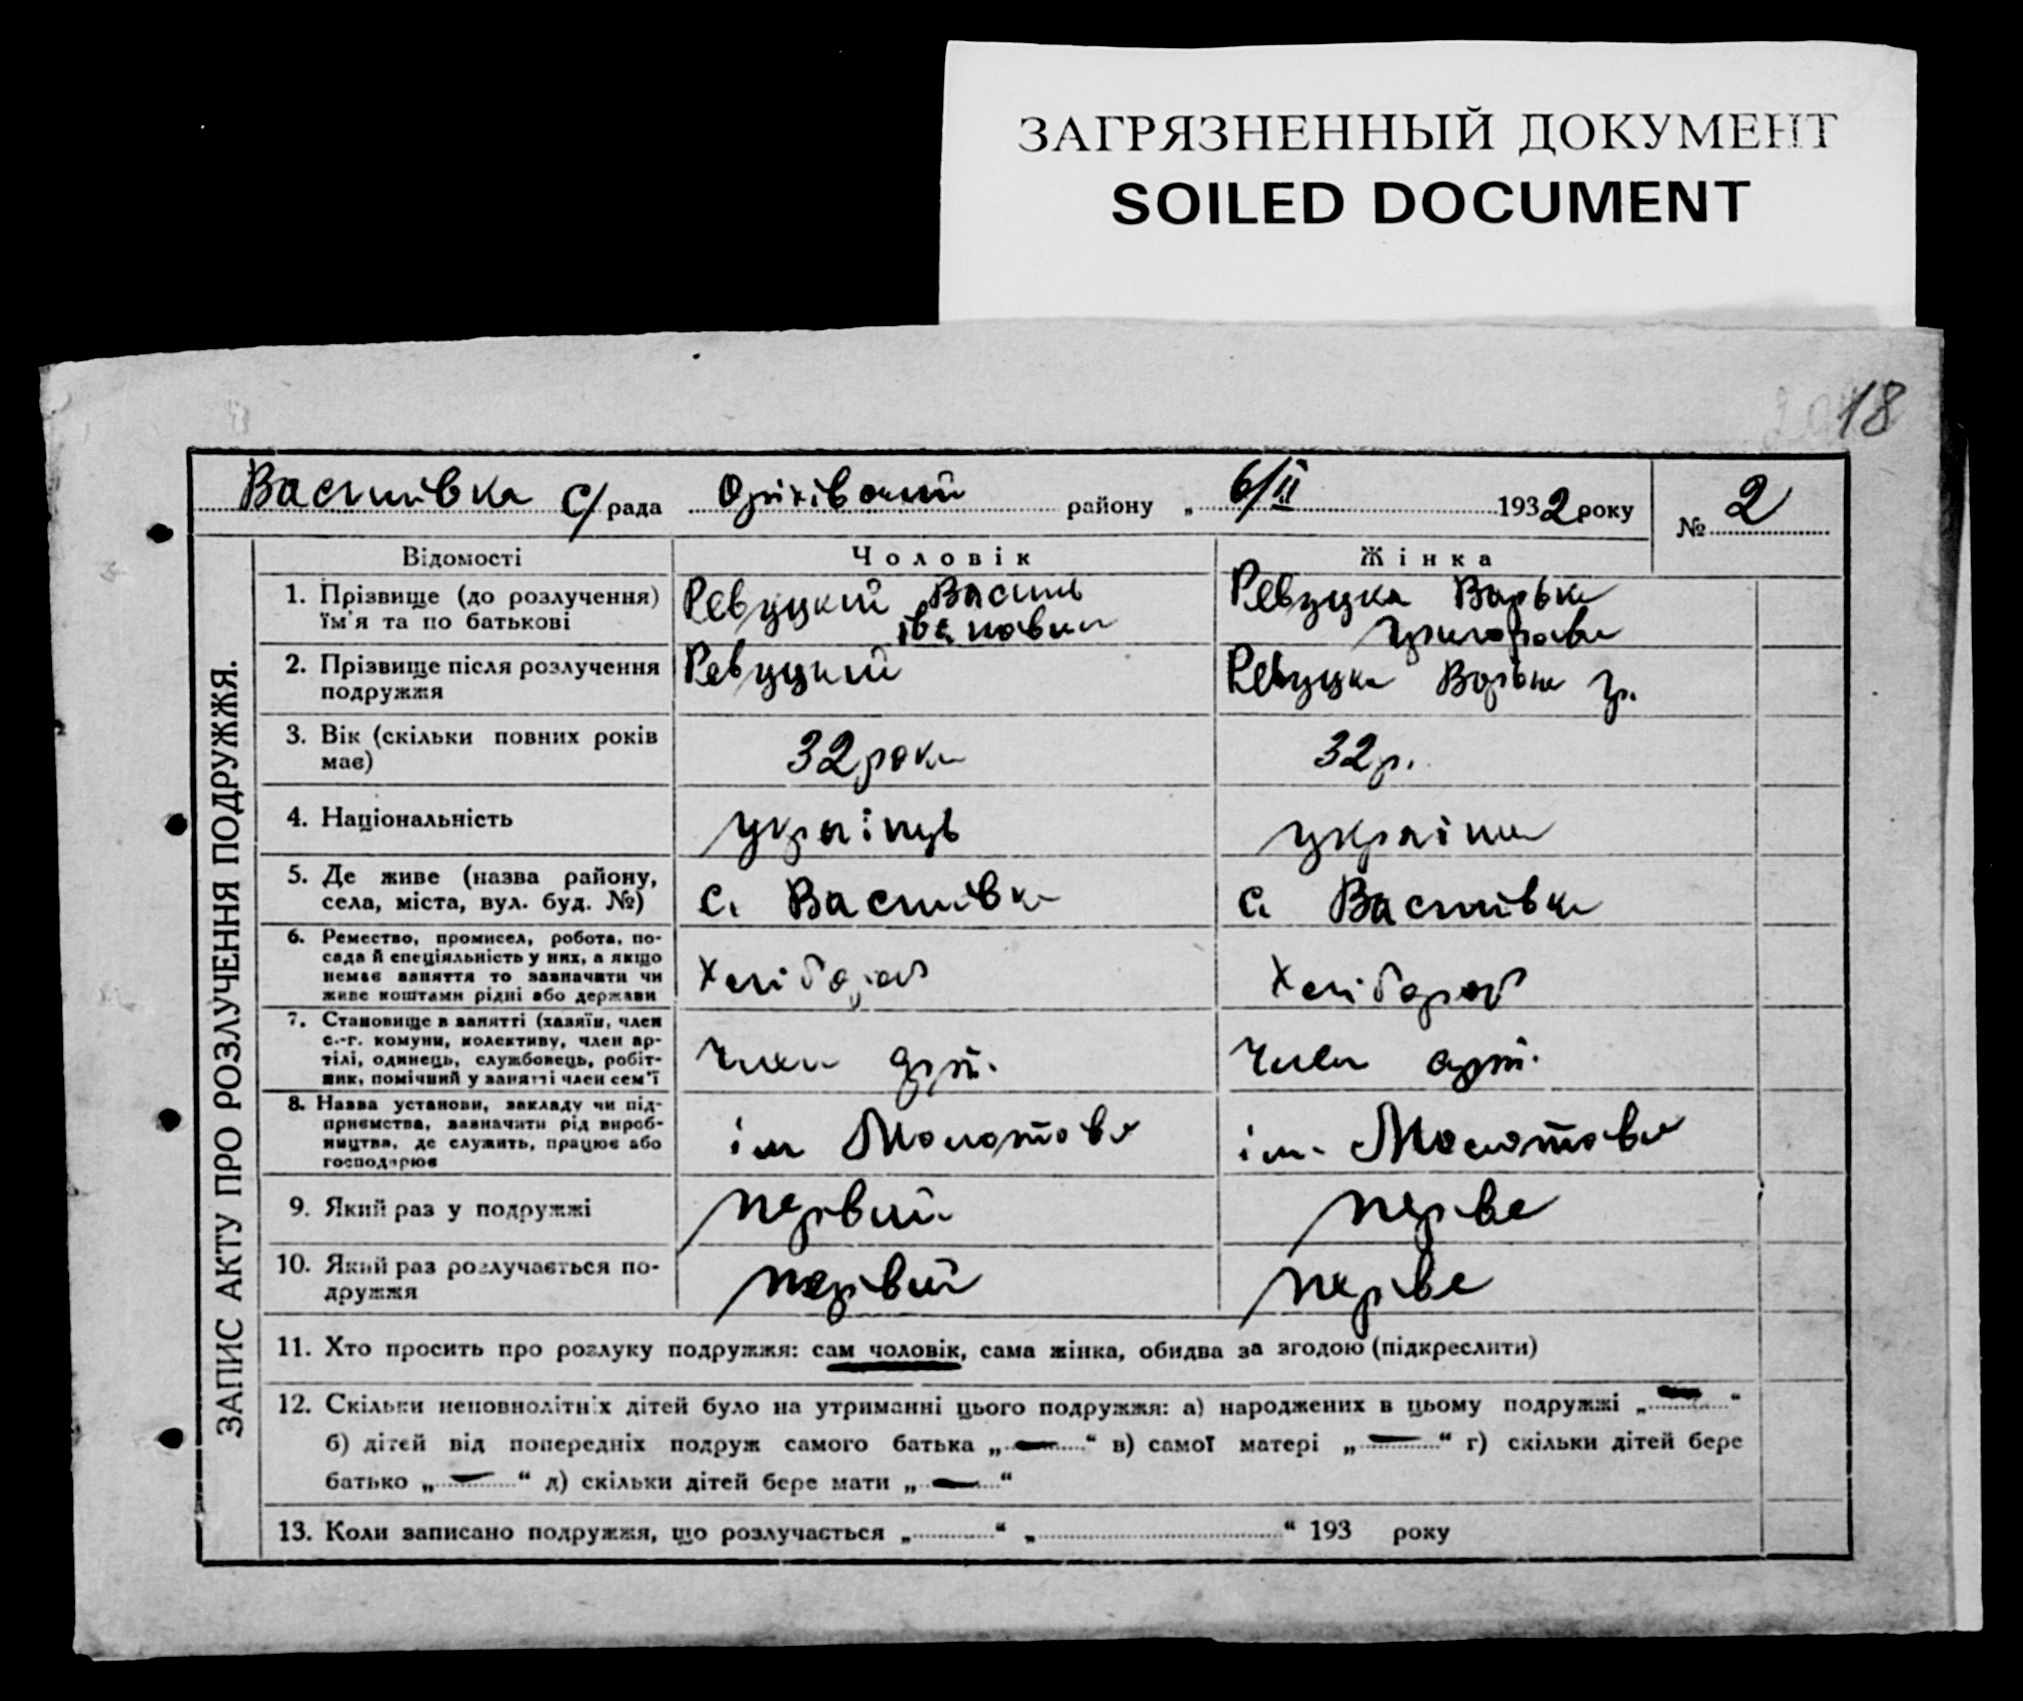 ЗАГРЯЗНЕННЫЙ ДОКУМЕНТ
SOILED DOCUMENT
18
Василівка С/рада Оріхівський району „ 6/ІІ 1932 року № 2
ЗАПИС АКТУ ПРО РОЗЛУЧЕННЯ ПОДРУЖЖЯ.
Відомості Чоловік Жінка
1. Прізвище (до розлучення) Ревуцкий Василь Ревуцка Варька
їм'я та по батькові Іванович Григоровн
2. Прізвище після розлучення Ревуцкий Ревуцка Варька Гр.
подружжя
3. Вік (скільки повних років 32 роки 32 р.
має)
4. Національність українць украінка
5. Де живе (назва району, с. Василівка с. Василівка
села, міста, вул. буд. №)
6. Ремество, промисел, робота, по-
сада й спеціяльність у них, а якщо Хлібороб Хлібороб
немає заняття то зазначити чи
живе коштами рідні або держави
7. Становище в занятті (хазяїн, член
с.-г. комуни, колективу, член ар- Член арт. Член арт.
тілі, одинець, службовець, робіт-
ник, помічний у занятті член сем'ї
8. Назва установи, закладу чи під-
приємства, зазначити рід вироб- ім Молотова ім. Молотова
ництва, де служить, працює або
господарює
9. Який раз у подружжі первий перве
10. Який раз розлучається по- первий перве
дружжя
11. Хто просить про розлуку подружжя: сам чоловік, сама жінка, обидва за згодою (підкреслити)
12. Скільки неповнолітніх дітей було на утриманні цього подружжя: а) народжених в цьому подружжі „ — “
б) дітей від попередніх подруж самого батька „ — “ в) самої матері „ — “ г) скільки дітей бере
батько „ — “ д) скільки дітей бере мати „ — “
13. Коли записано подружжя, що розлучається „ “ „ “ 193 року